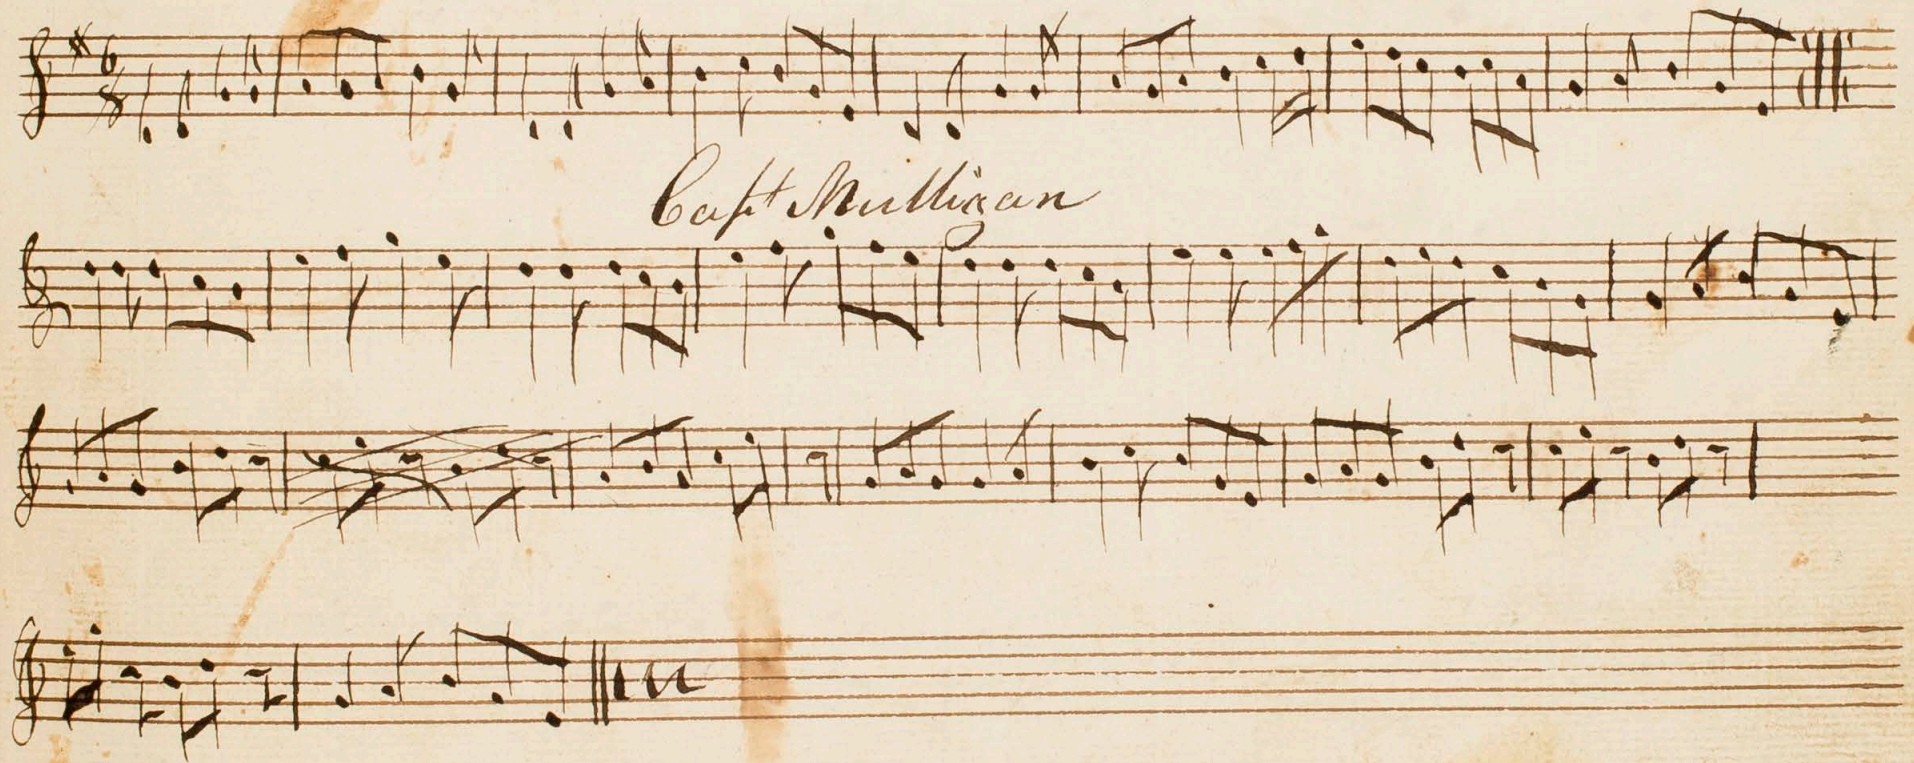 6
8
Capt Mulligan